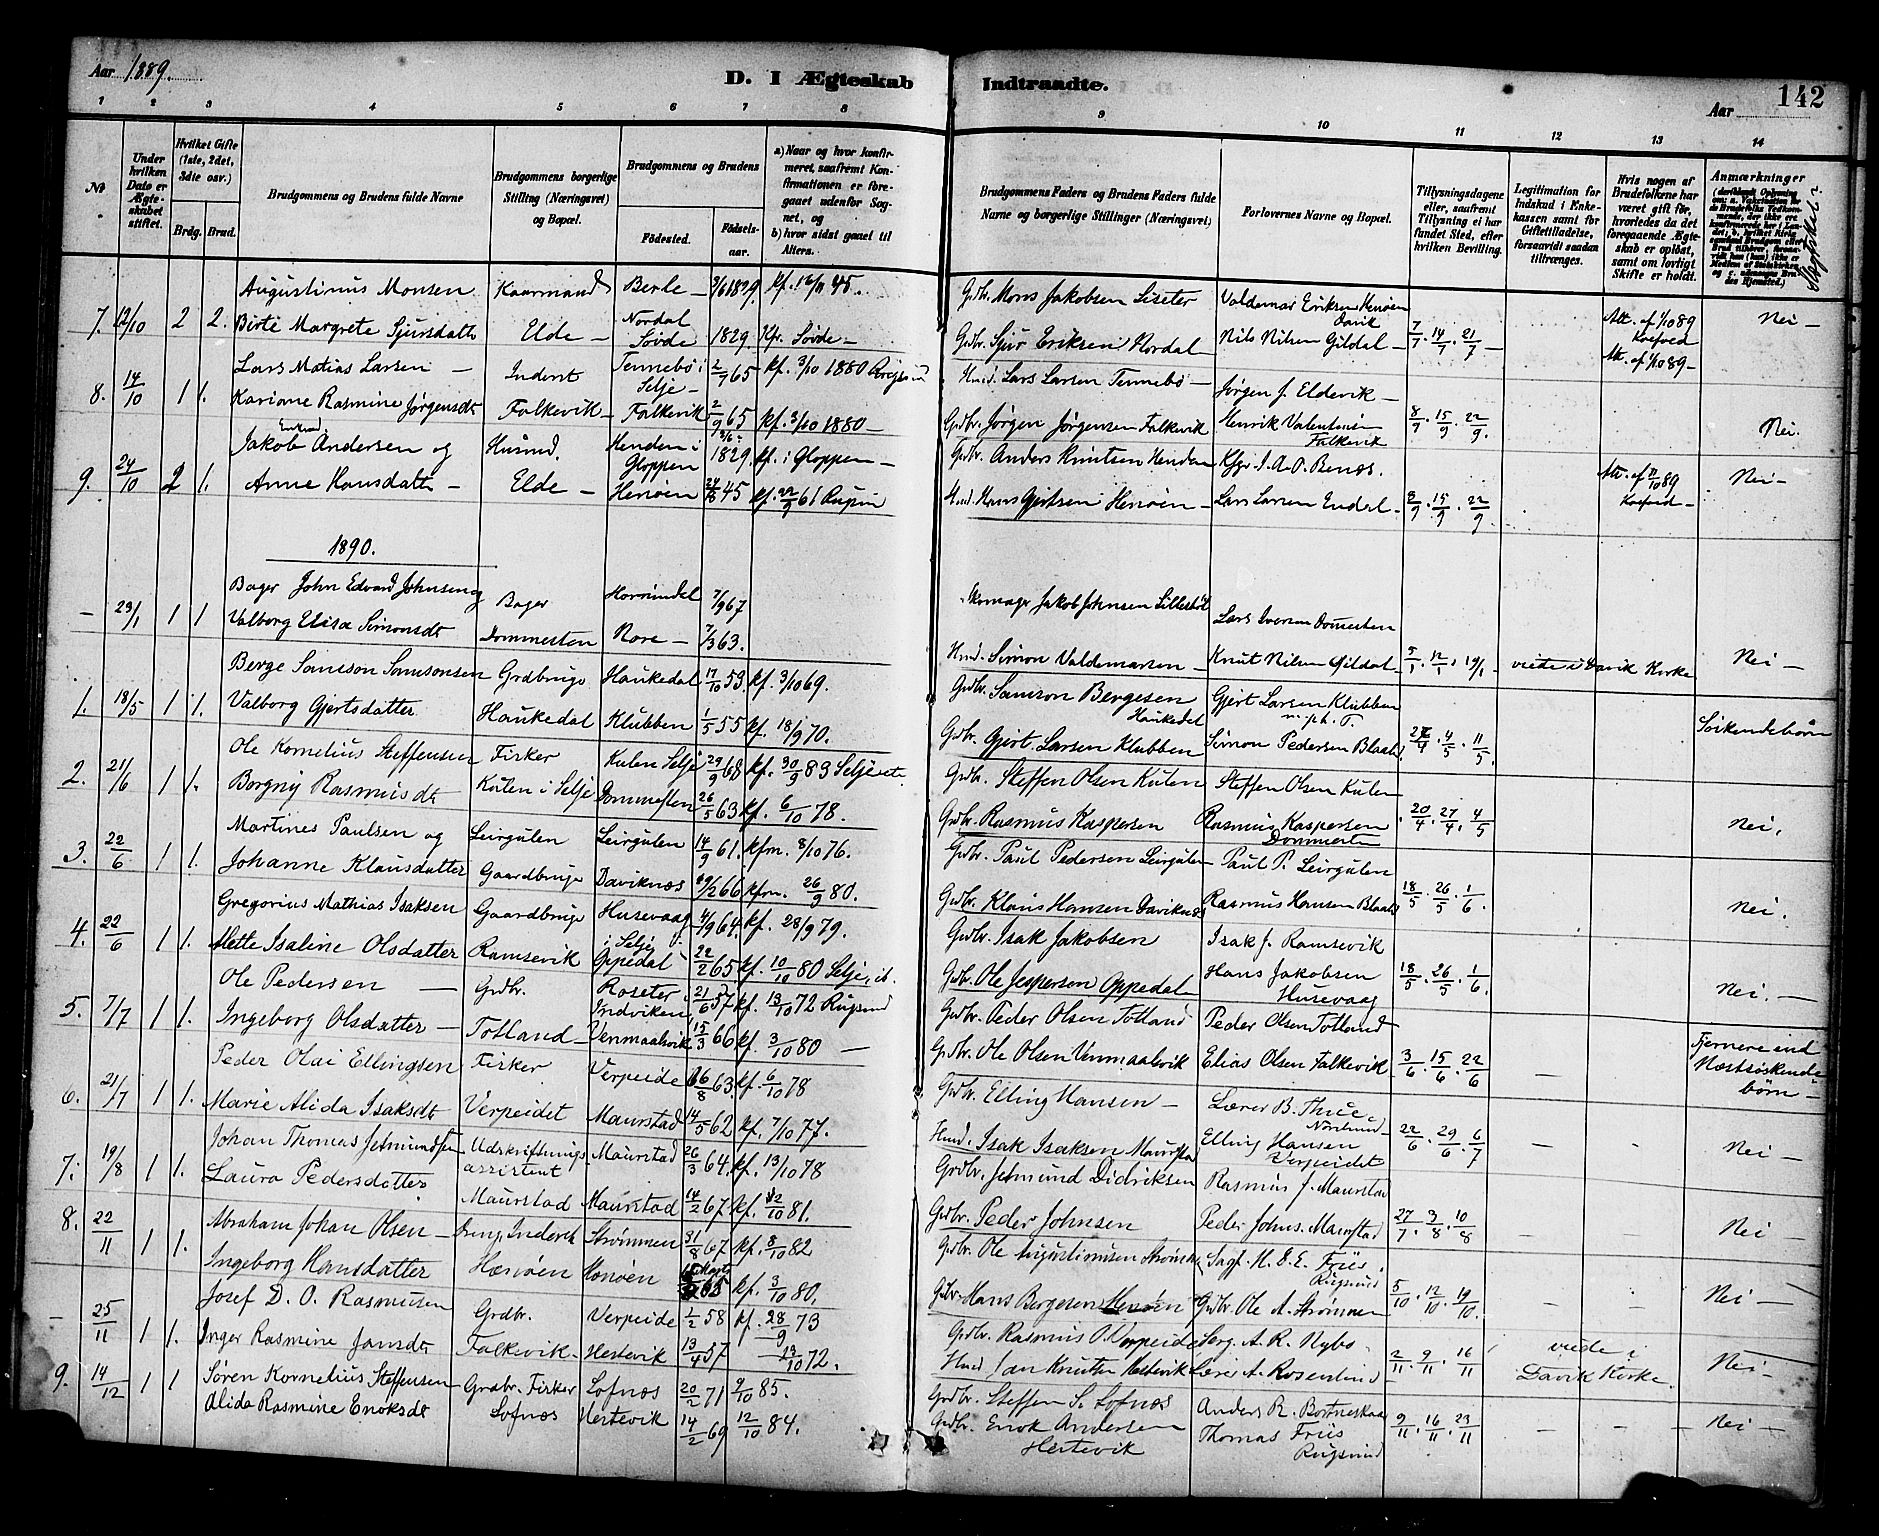 Aar 1889.
D. I Ægteskab Indtraadte.
Aar
142
1 2 3 4 5 6 7 8 9 10 11 12 13 14
№
Under hvilken Dato er Ægteskabet stiftet.
Hvilket Gifte (1ste, 2det, 3die osv.)
Brdg. Brud.
Brudgommens og Brudens fulde Navne
Brudgommens borgerlige Stilling (Næringsvei) og Bopæl.
Brudgommens og Brudens
Fødested. Fødselsaar.
a) Naar og hvor konfirmeret, saafremt Konfirmationen er foregaaet udenfor Sognet, og
b) hvor sidst gaaet til Alters.
Brudgommens Faders og Brudens Faders fulde Navne og borgerlige Stillinger (Næringsvei)
Forlovernes Navne og Bopæl.
Tillysningsdagene eller, saafremt Tillysning ei har fundet Sted, efter hvilken Bevilling.
Legitimation for Indskud i Enkekassen samt for Giftetilladelse, forsaavidt saadan tiltrænges.
Hvis nogen af Brudefolkene har været gift før, hvorledes da det foregaaende Ægteskab er opløst, samt om lovligt Skifte er holdt.
Anmærkninger
Beslægtet?
Augustinus Monsen Kaarmand Berle 3/6 1829 kf. 12/11 45. Grdbr. Mons Jakobsen Liseter Valdemar Eriksen Henøen Davik
7. 12/10 2 2. Birte Margrete Sjursdatte Elde Nordal Søvde 1829 Kfr. Søvde Grdbr. Sjur Eriksen Nordal Nils Nilsen Gildal 7/7. 14/7. 21/7 Att. af 1/10 89 Koefoed Att. af 1/10 89 Nei
Lars Matias Larsen Inderst Tennebø i Selje 2/7 65 kf. 3/10 1880 Rugsund Hmd. Lars Larsen Tennebø Jørgen J. Eldevik
8. 14/10 1 1. Kariane Rasmine Jørgensdt Falkevik Falkevik 2/9 65 kf. 3/10 1880 Grdbr. Jørgen Jørgensen Falkevik Henrik Valentinsen Falkevik 8/9. 15/9. 22/9. Nei.
Enkmd. Jakob Andersen og Husmd. Henden i Gloppen 1829. kf. i Gloppen Grdbr. Anders Knutsen Henden Kfgr. J. A. O. Benæs.
9. 24/10 2 1. Anne Hansdatte Elde Henøen 45 kf. 22/9 61 Hmd. Hans Gjertsen Henøen Lars Larsen Endal 8/9. 15/9. 22/9 Att. af 11/10 89 Koefoed Nei
1890.
Bager John Edvard Johnsen og Bager Hornindal 7/9 67 Skomager Jakob Johnsen Lillebø Lars Iversen Dommesten
23/1 1 1 Valborg Elisa Simonsdt Dommesten Rore 7/3 63. Hmd. Simon Valdemarsen Knut Nilsen Gildal 5/1. 12/1. 19/1 viede i Davik Kirke Nei
Berge Samson Samsonsen Grdbruge Haukedal 17/10 53. kf. 3/10 69. Grdbr. Samson Bergesen Haukedal Gjert Larsen Klubben
1. 18/5 1 1. Valborg Gjertsdatter Haukedal Klubben 1/5 55 kf. 18/9 70. Grdbr. Gjert Larsen Klubben Simon Pedersen Blaals 27/4. 4/5. 11/5. Søskendebørn
Ole Kornelius Steffensen Fisker Kulen Selje 29/9 68 kf. 30/9 83 Selje Grdbr. Steffen Olsen Kulen Steffen Olsen Kulen
2. 21/6 1 1. Borgny Rasmusdt Kulen i Selje Dommesten 26/5 63 kf. 6/10 78. Grdbr. Rasmus Kaspersen Rasmus Kaspersen Dommesten 20/4. 27/4. 4/5 Nei.
Martines Paulsen og Leirgulen Leirgulen 14/9 61. kfm. 8/10 76. Grdbr. Paul Pedersen Leirgulen Paul P. Leirgulen
3. 22/6 1 1. Johanne Klausdatter Gaardbruge Daviknæs 66 kfm. 26/9 80. Grdbr. Klaus Hansen Daviknes Rasmus Hansen Blaals 18/5. 26/5. 1/6. Nei.
Gregorius Mathias Isaksen Gaardbruge Husevaag i Selje 4/9 64. kf. 28/9 79. Grdbr. Isak Jakobsen Isak J. Ramsevik
4. 22/6 1 1. Mette Isaline Olsdatter Ramsevik Oppedal 22/2 65 kf. 10/10 80 Selje Grdbr. Ole Jespersen Oppedal Hans Jakobsen Husevaag 18/5. 26/5. 1/6. Nei.
Ole Pedersen Grdbr. Roseter Indviken 21/6 57 kf. 13/10 72 Rugsund Grdbr. Peder Olsen Totland Peder Olsen Totland
5. 7/7 1 1. Ingeborg Olsdatter Totland Venmaalvik 15/3 66 kf. 3/10 80 Grdbr. Ole Olsen Venmaalvik Elias Olsen Falkevik 3/6. 15/6. 22/6 Fjernere end Næstsøskendebørn
Peder Olai Ellingsen Fisker Verpeide 16/8 63. kf. 6/10 78 Grdbr. Elling Hansen Lærer B. Thue
6. 21/7 1 1. Marie Alida Isaksdt Verpeidet Maurstad 14/5 62 kf. 7/10 77. Husmd. Isak Isaksen Maurstad Elling Hansen Verpeidet 22/6. 29/6. 6/7 Nei
Johan Thomas Jetmundsen Udskriftningsassistent Maurstad 26/3 64. kf. 13/10 78 Grdbr. Jetmund Didriksen Rasmus J. Maurstad
7. 19/8 1 1. Laura Pedersdatter Maurstad Maurstad 14/2 67. kf. 2/10 81. Grdbr. Peder Johnsen Peder Johns. Maurstad 27/7. 3/8. 10/8 Nei
Abraham Johan Olsen Dreng, Inderst Strømmen 31/8 67 kf. 8/10 82 Grdbr. Ole Augustinusen Strømme Sagf. H. E. Friis Rugsund
8. 22/11 1 1. Ingeborg Hansdatter Henøen Henøen 65 kf. 3/10 80. Grdbr. Hans Bergesen Henøen Grdbr. Ole A. Strømmen 5/10. 12/10. 19/10. Nei
Josef D. O. Rasmusen Grdbr. Verpeide 1/2 58 kf. 28/9 73 Grdbr. Rasmus O. Verpeide Serg. A. R. Nybø
25/11 1 1. Inger Rasmine Jansdt Falkevik Hestevik 13/4 57 13/10 72. Hmd. Jan Knutsen Hestevik Lærer A. Rosenlund 2/11. 9/11. 16/11 viede i Davik Kirke. Nei
Søren Kornelius Steffensen Grdbr. Fisker Lofnæs 20/2 71 9/10 85. Grdbr. Steffen S. Lofnæs Anders R. Bortneskaa
9. 14/12 1 1 Alida Rasmine Enoksdt Lofnæs Hestevik 14/2 69 12/10 84. Grdbr. Enok Andersen Hestevik Thomas Friis Rugsund 9/11. 16/11. 23/11 Nei